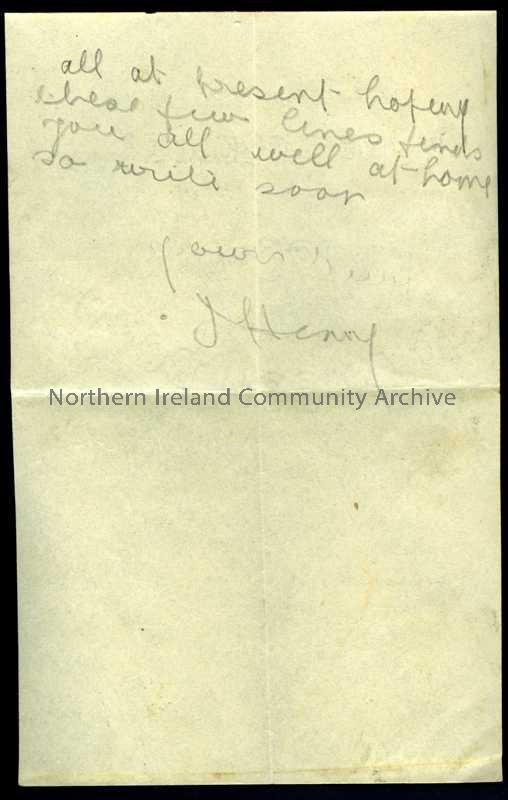 all at present hoping
these few lines finds
you all well at home
so write soon
yours
J Henry
Northern Ireland Community Archive